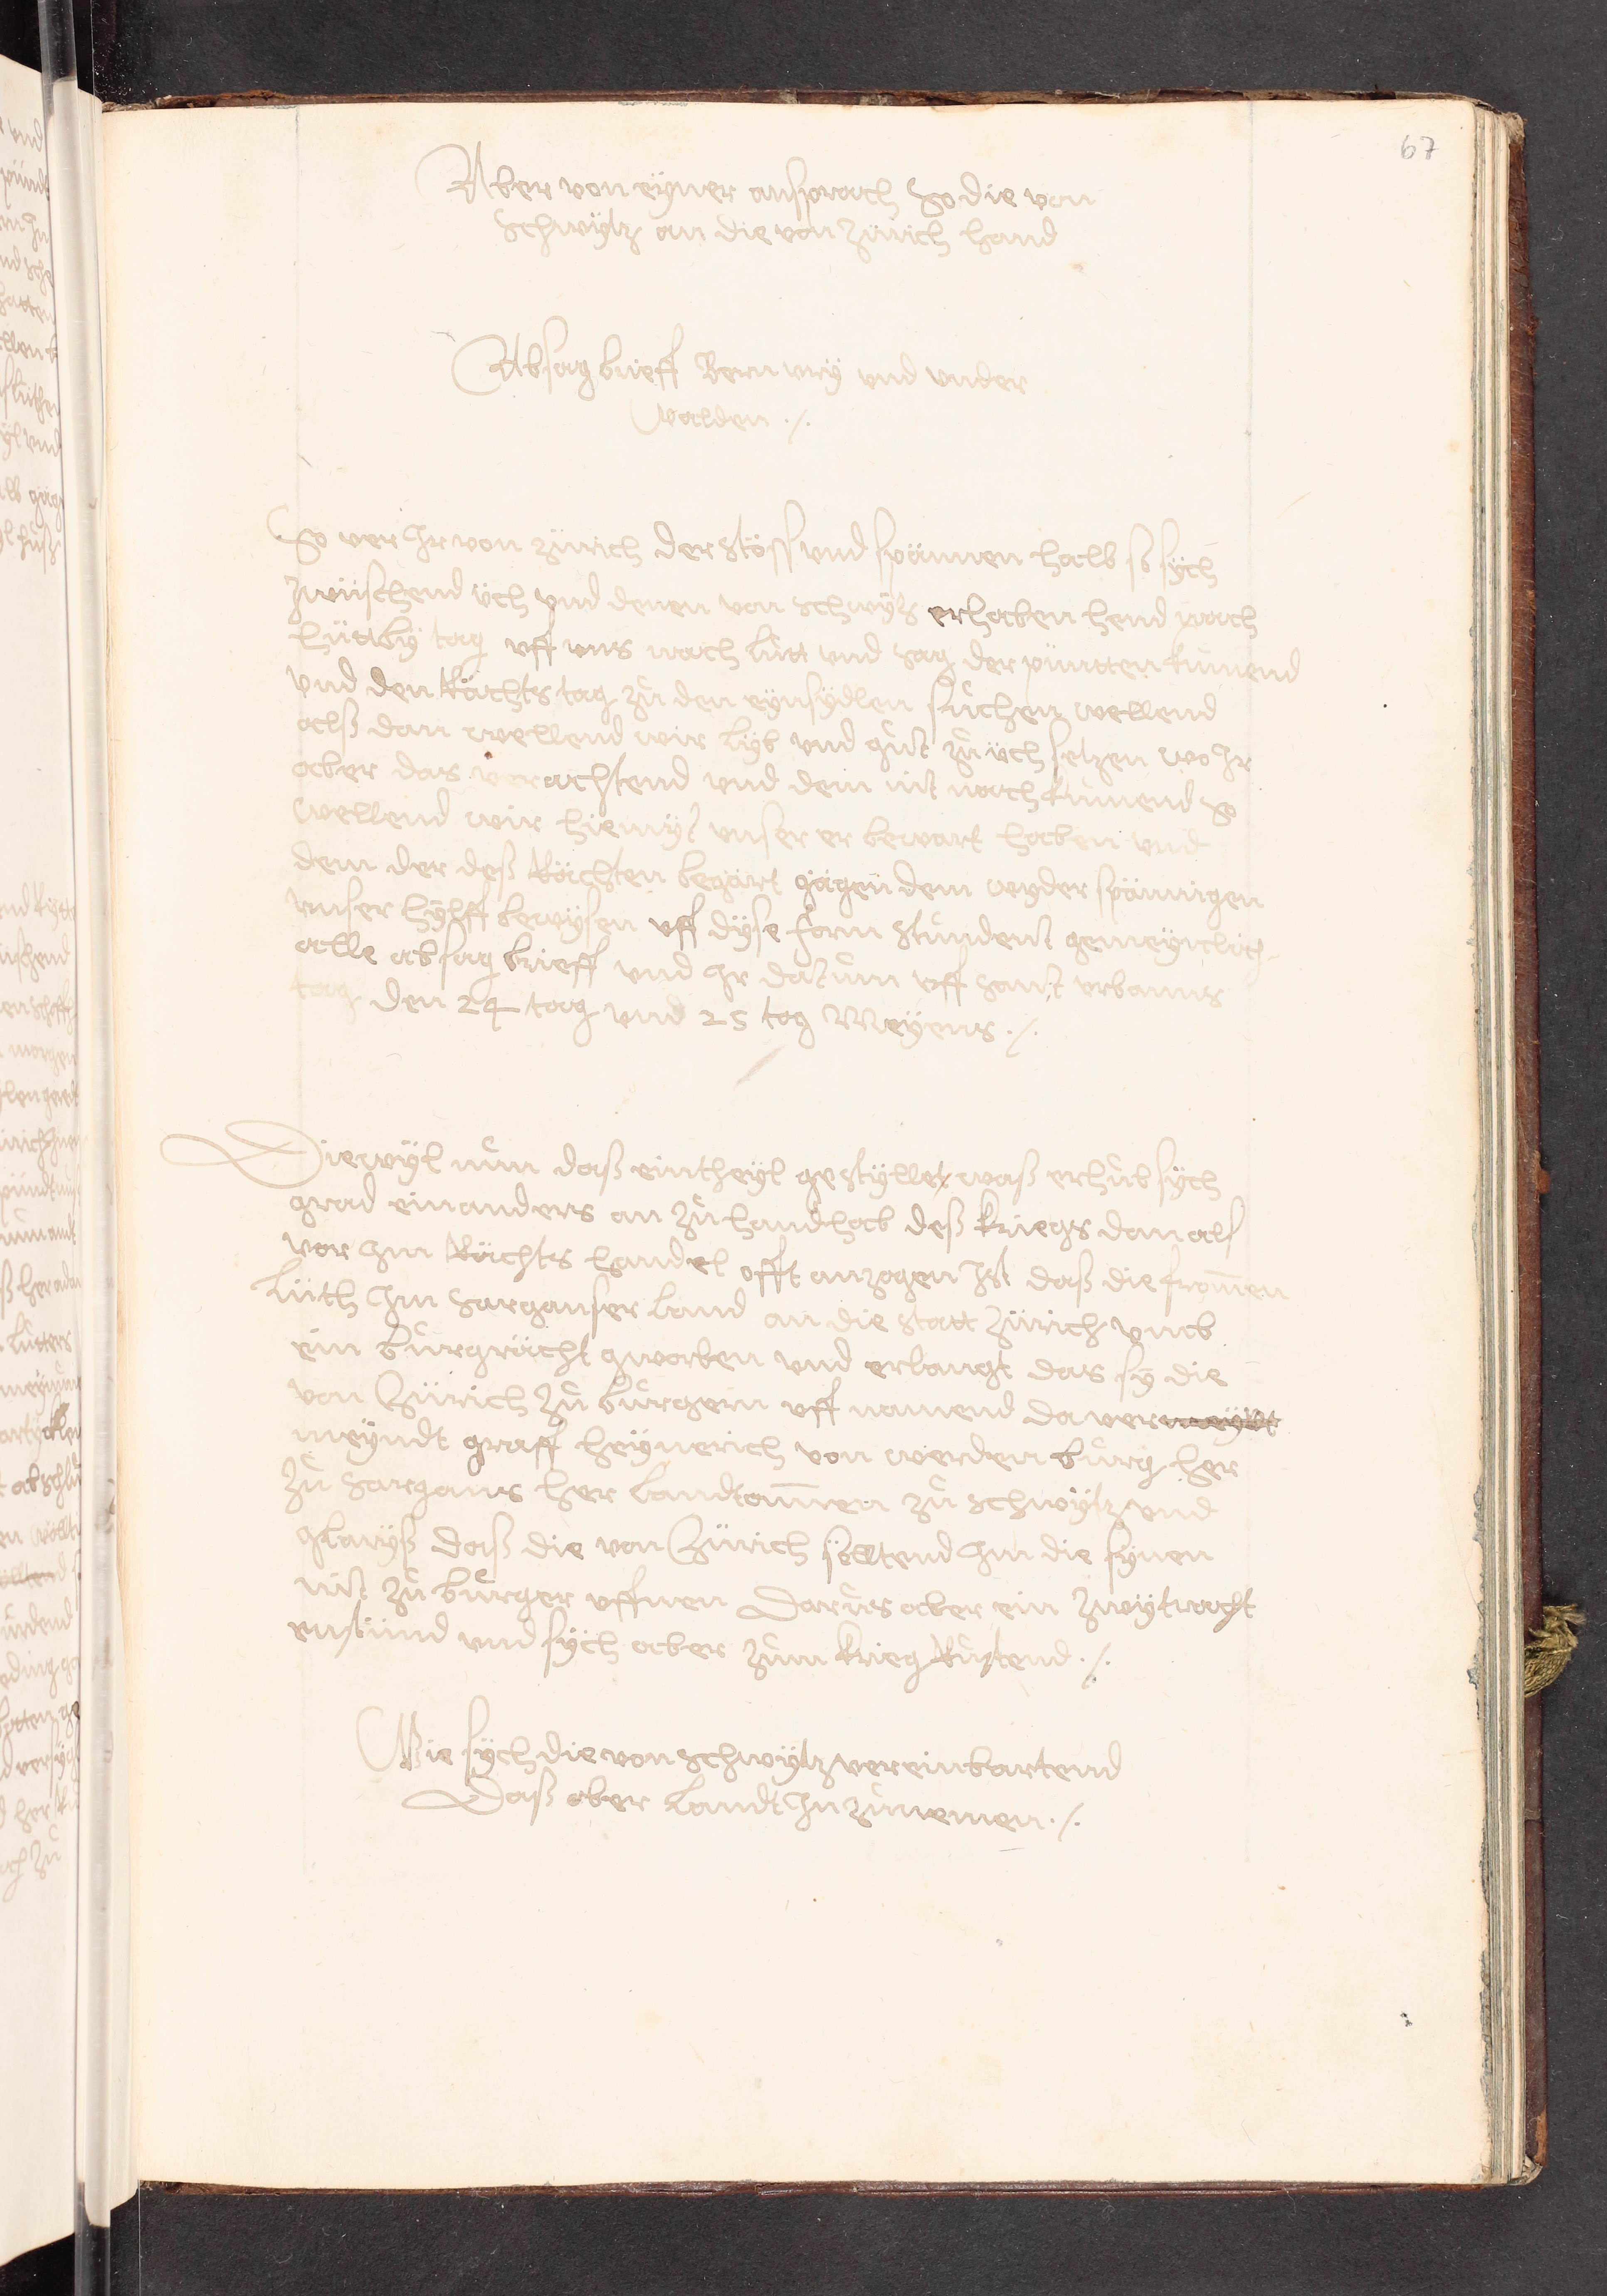 67
Aber von eÿner ansprach So die von
Schwÿtz an die von Zürich hand
Absag brieff Bern vrÿ vnd vnder
walden ./.
So ver Ir von Zürich der stöss vnd spännen halb so sÿch
zwüschend üch vnd denen von Schwÿtz erhaben hend nach
hüttbÿ tag vff vns nach lutt vnd sag der püntten kumend
vnd den Rächts tag zů den eÿnsÿdlen sůchen wellend
alß dan wellend wir lÿb vnd gůt zů üch setzen wo Ir
aber das verachtend vnd dem nit nach kumend So
wellend wir hiemÿt vnser er bewart haben vnd
dem der deß Rächten begärt gägen dem wÿder spännigen
vnser hÿlff bewÿsen vff dÿse form stůndent gemeÿnclich
alle absag brieff vnd Ir datum vff sant vrbanus
tag den 24 tag vnd 25 tag Meÿens ./.
Diewÿl nůn daß ein theÿl gestÿllet waß erhůb sÿch
grad ein anders an zů handhab deß kriegs dan als
vor Im Rächts handel offt anzogen Ist daß die from̄en
lüth Im Sarganser land an die statt Zürich vmb
ein bůrgrächt gworben vnd erlangt das sÿ die
von Zürich zů bůrgern vff namend da ver
meÿndt graff heÿnerich von werdenbůrg her
zů Sargans her landtam̄en zů Schwÿtz vnd
glarÿß daß die von Zürich söltend Im die sÿnen
nit zů bůrger vffnen Darůs aber ein zwÿtracht
enstůnd vnd sÿch aber zům krieg Růstend ./.
Wie sÿch die von Schwÿtz vereinbartend
Daß ober landt In zů nemen ./.